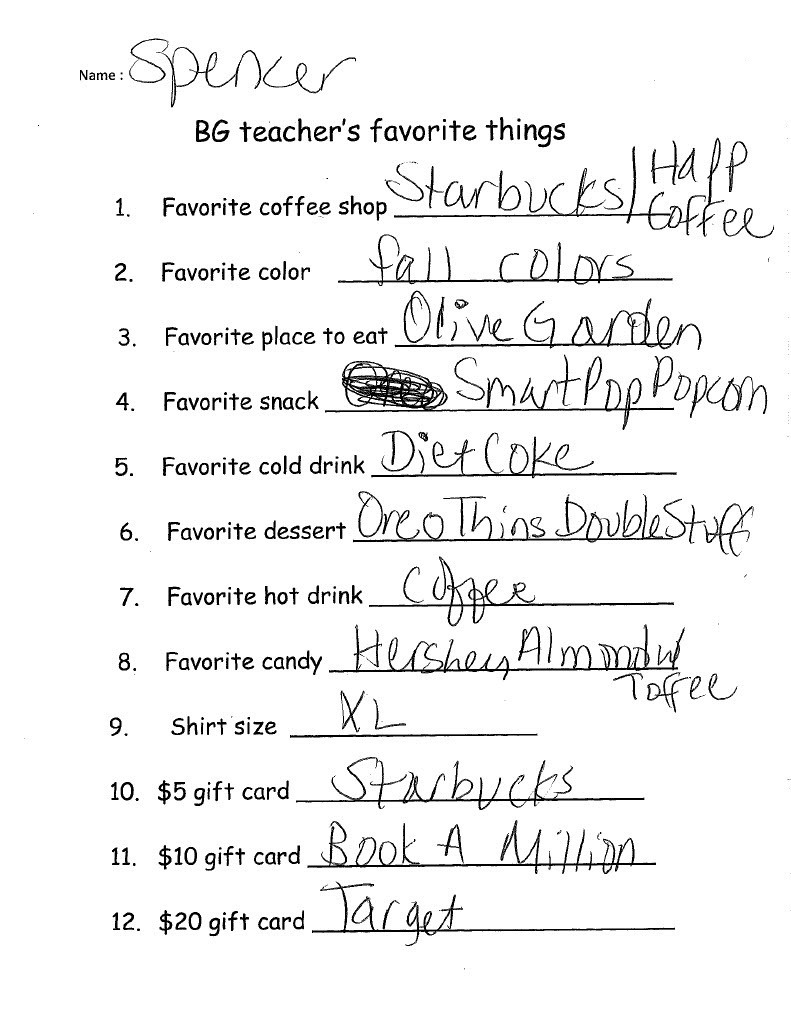 Name : Spencer
BG teacher's favorite things
1. Favorite coffee shop Starbucks/Happ
Coffee
2. Favorite color fall colors
3. Favorite place to eat Olive Garden
4. Favorite snack SmartPop Popcorn
5. Favorite cold drink Diet Coke
6. Favorite dessert Oreo Thins Double Stuff
7. Favorite hot drink Coffee
8. Favorite candy Hershey Almond w/
Toffee
9. Shirt size XL
10. $5 gift card Starbucks
11. $10 gift card Book A Million
12. $20 gift card Target